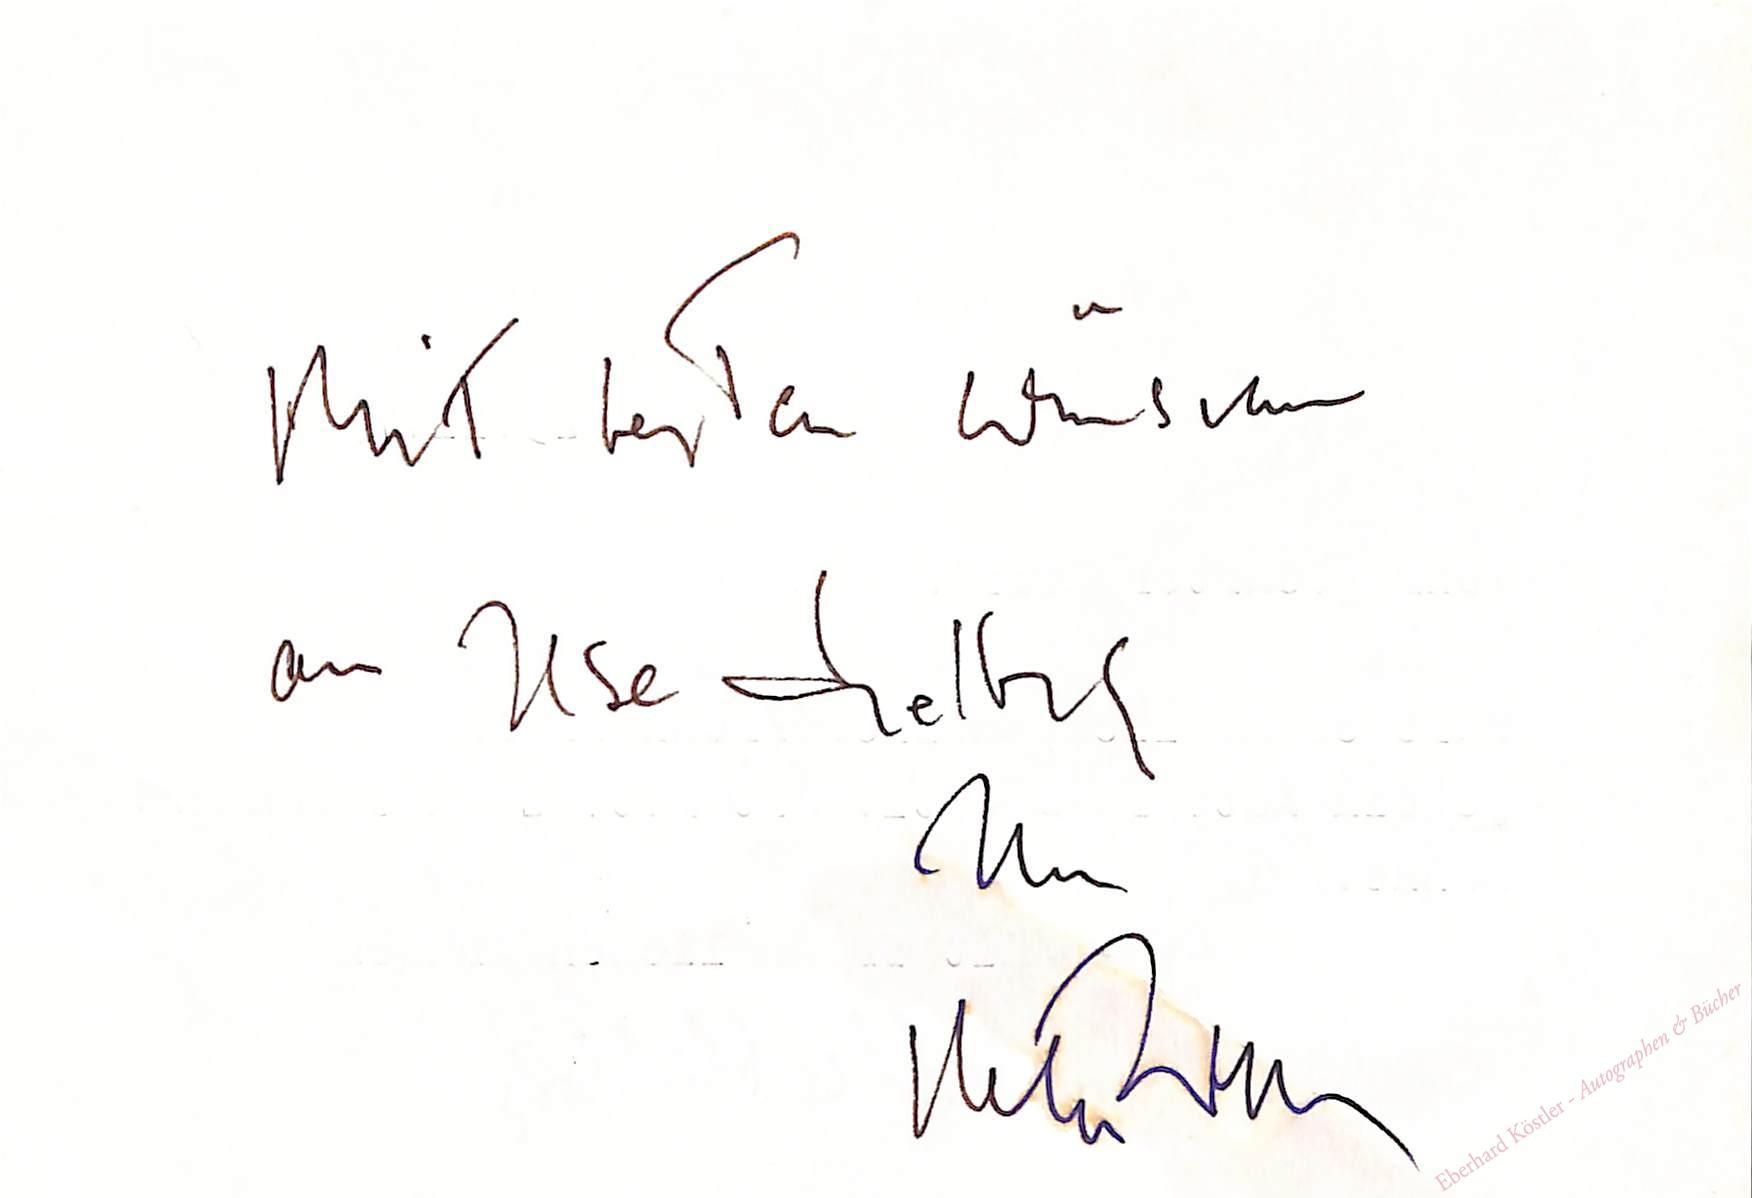 Mit besten Wünschen
an Ilse Helbig
Ihr
Eberhard Köstler - Autographen & Bücher